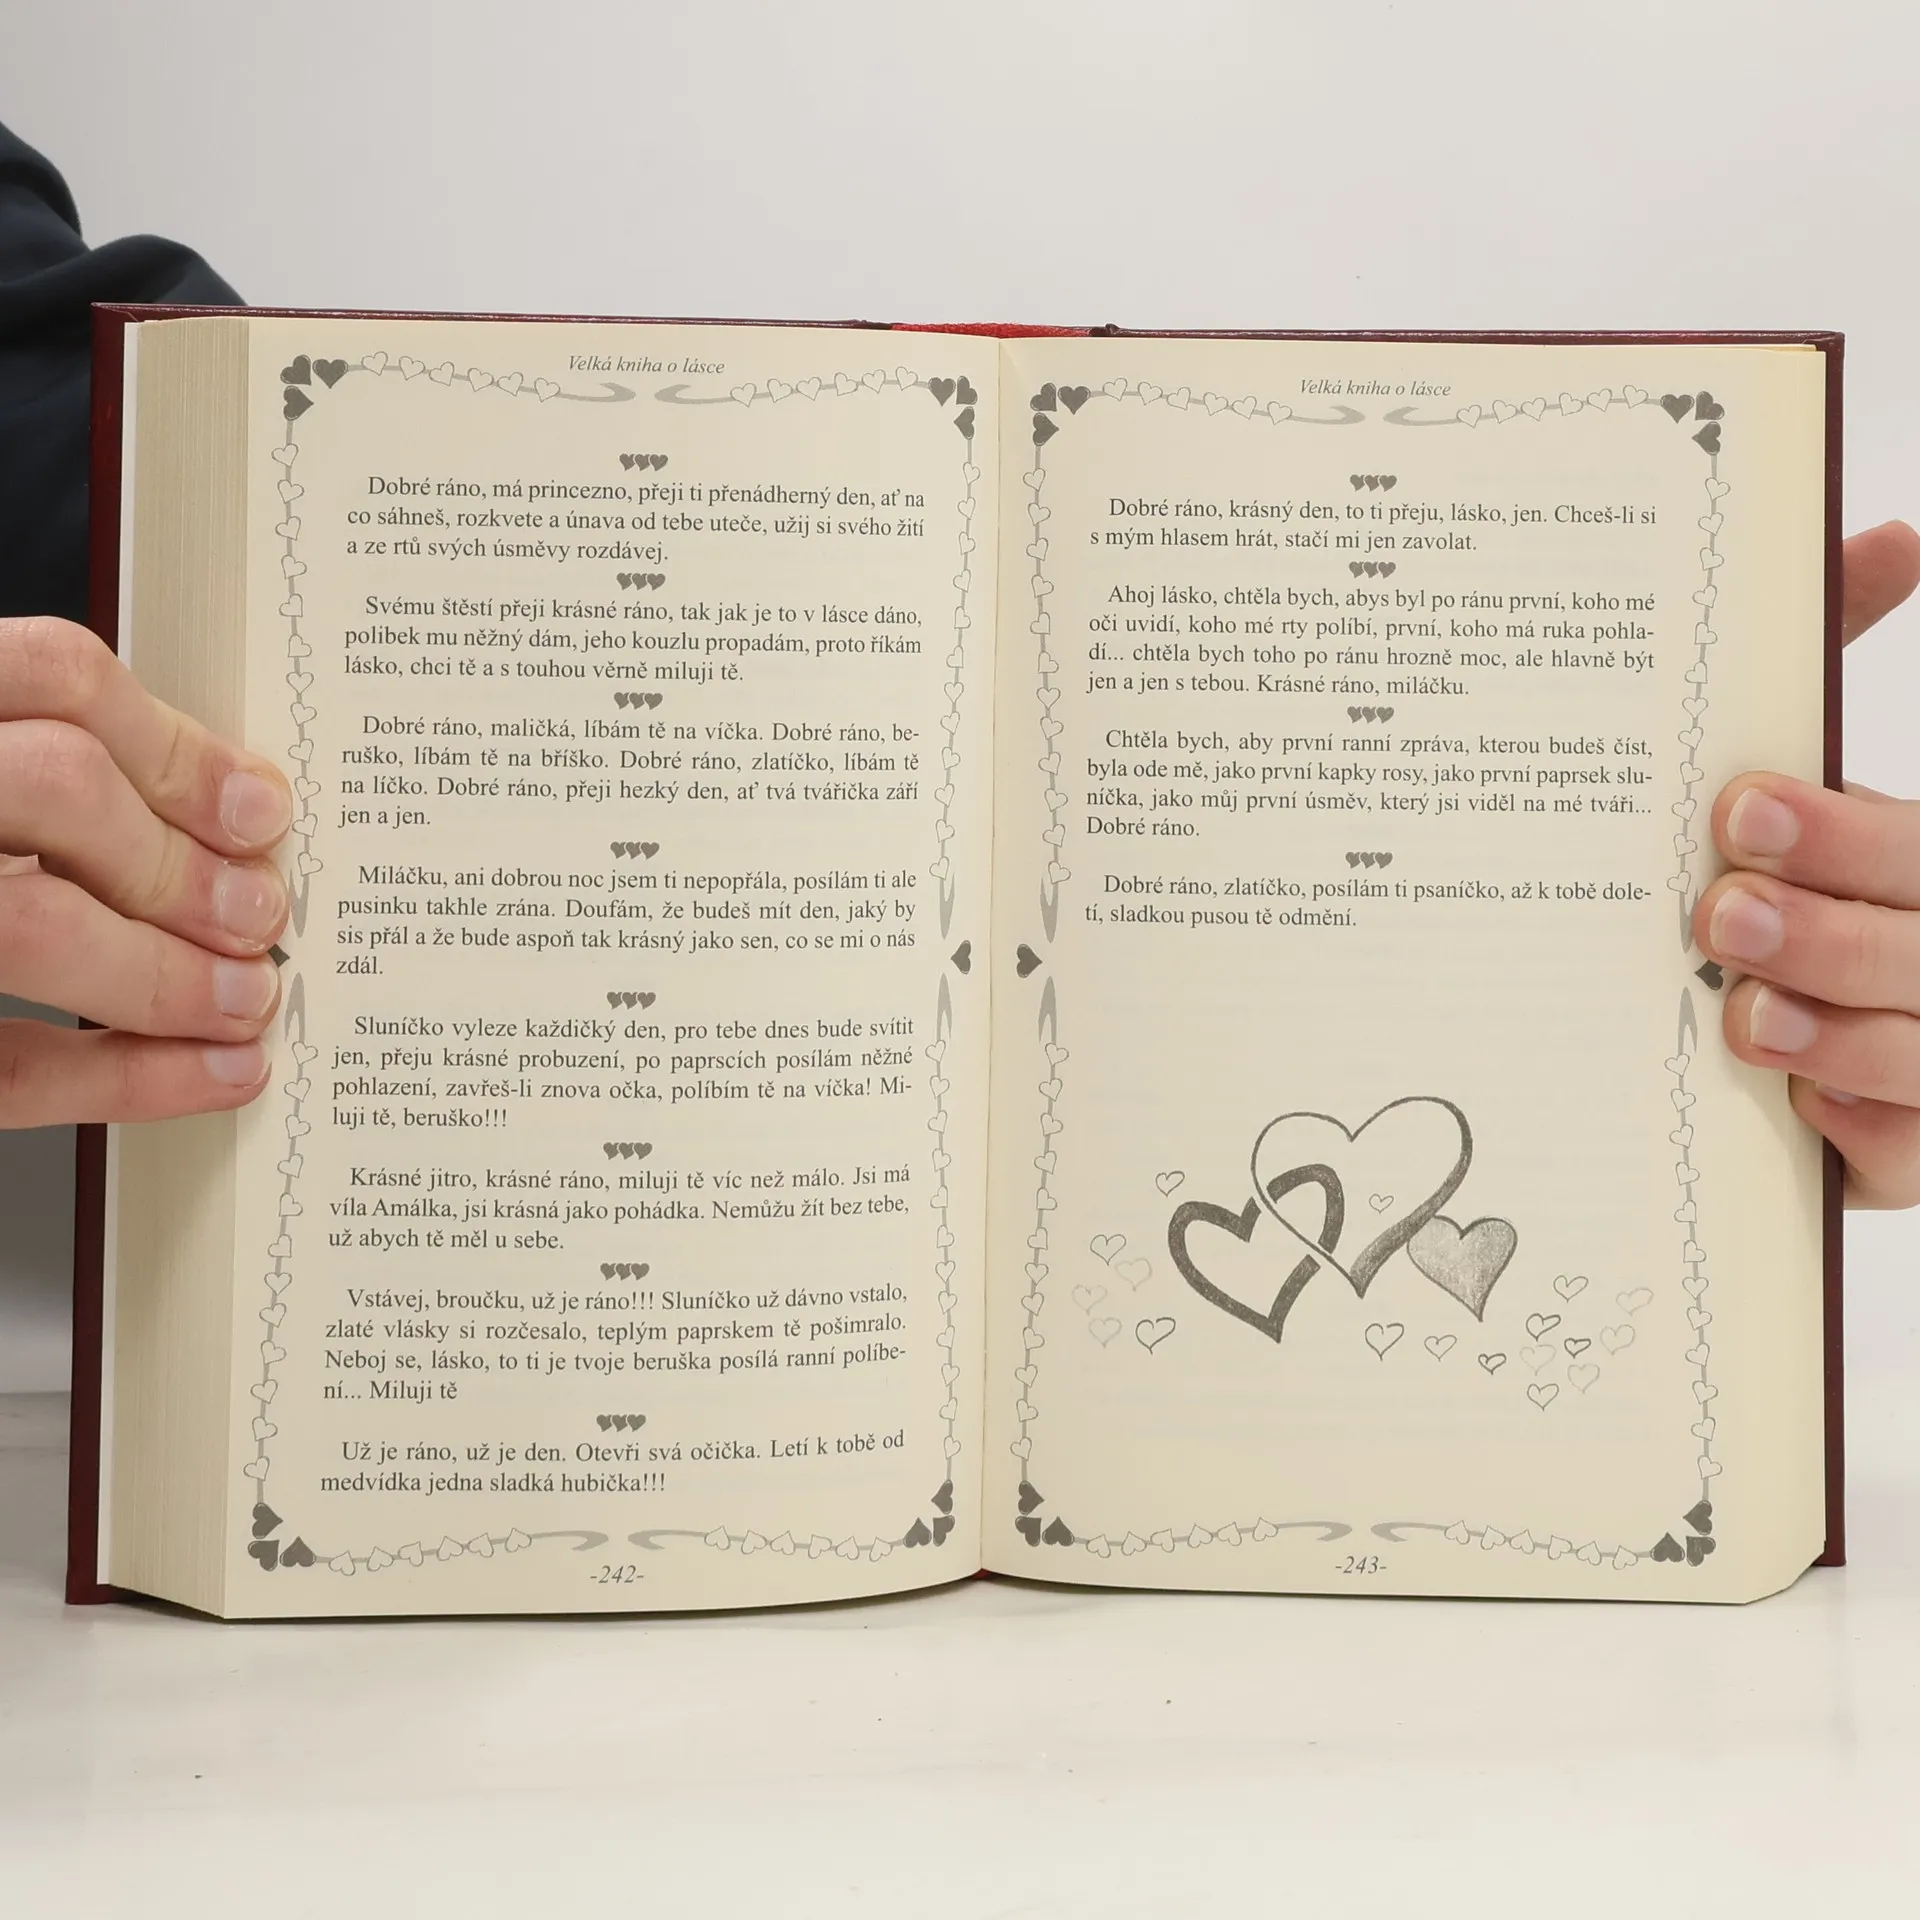 Velká kniha o lásce
Dobré ráno, má princezno, přeji ti přenádherný den, ať na
co sáhneš, rozkvete a únava od tebe uteče, užij si svého žití
a ze rtů svých úsměvy rozdávej.
Svému štěstí přeji krásné ráno, tak jak je to v lásce dáno,
polibek mu něžný dám, jeho kouzlu propadám, proto říkám
lásko, chci tě a s touhou věrně miluji tě.
Dobré ráno, maličká, líbám tě na víčka. Dobré ráno, be-
ruško, líbám tě na bříško. Dobré ráno, zlatíčko, líbám tě
na líčko. Dobré ráno, přeji hezký den, ať tvá tvářička září
jen a jen.
Miláčku, ani dobrou noc jsem ti nepopřála, posílám ti ale
pusinku takhle zrána. Doufám, že budeš mít den, jaký by
sis přál a že bude aspoň tak krásný jako sen, co se mi o nás
zdál.
Sluníčko vyleze každičký den, pro tebe dnes bude svítit
jen, přeju krásné probuzení, po paprscích posílám něžné
pohlazení, zavřeš-li znova očka, políbím tě na víčka! Mi-
luji tě, beruško!!!
Krásné jitro, krásné ráno, miluji tě víc než málo. Jsi má
víla Amálka, jsi krásná jako pohádka. Nemůžu žít bez tebe,
už abych tě měl u sebe.
Vstávej, broučku, už je ráno!!! Sluníčko už dávno vstalo,
zlaté vlásky si rozčesalo, teplým paprskem tě pošimralo.
Neboj se, lásko, to ti je tvoje beruška posílá ranní políbe-
ní... Miluji tě
Už je ráno, už je den. Otevři svá očička. Letí k tobě od
medvídka jedna sladká hubička!!!
-242-
Velká kniha o lásce
Dobré ráno, krásný den, to ti přeju, lásko, jen. Chceš-li si
s mým hlasem hrát, stačí mi jen zavolat.
Ahoj lásko, chtěla bych, abys byl po ránu první, koho mé
oči uvidí, koho mé rty políbí, první, koho má ruka pohla-
dí... chtěla bych toho po ránu hrozně moc, ale hlavně být
jen a jen s tebou. Krásné ráno, miláčku.
Chtěla bych, aby první ranní zpráva, kterou budeš číst,
byla ode mě, jako první kapky rosy, jako první paprsek slu-
níčka, jako můj první úsměv, který jsi viděl na mé tváři...
Dobré ráno.
Dobré ráno, zlatíčko, posílám ti psaníčko, až k tobě dole-
tí, sladkou pusou tě odmění.
-243-